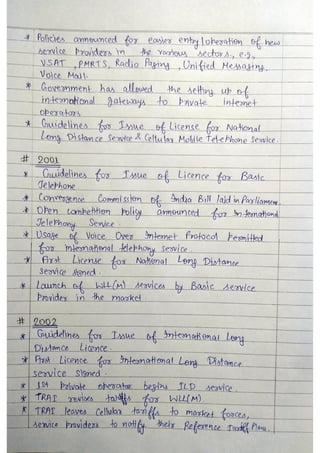 * Policies announced for easier entry/operation of new
service Providers in the various sectors, e.g,
VSAT, PMRTS, Radio Paging, Unified Messaging,
Voice Mail.
* Government has allowed the setting up of
international gateways to Private internet
operators
* Guidelines for Issue of License for National
Long Distance Service & Cellular Mobile Telephone Service.
# 2001
* Guidelines for Issue of Licence for Basic
Telephone
* Convergence Commission of India Bill laid in Parliament.
* Open competition policy announced for International
Telephony Service.
* Usage of Voice Over Internet Protocol Permitted
for international telephony service.
* First License for National Long Distance
service signed.
* Launch of WLL(M) services by Basic service
Provider in the market
# 2002
* Guidelines for Issue of International Long
Distance Licence.
* First Licence for International Long Distance
service signed.
* 1st Private operator begins ILD service.
* TRAI revises tariffs for WLL(M)
* TRAI leaves Cellular tariffs to market forces,
service providers to notify their Reference Tariff Plans.